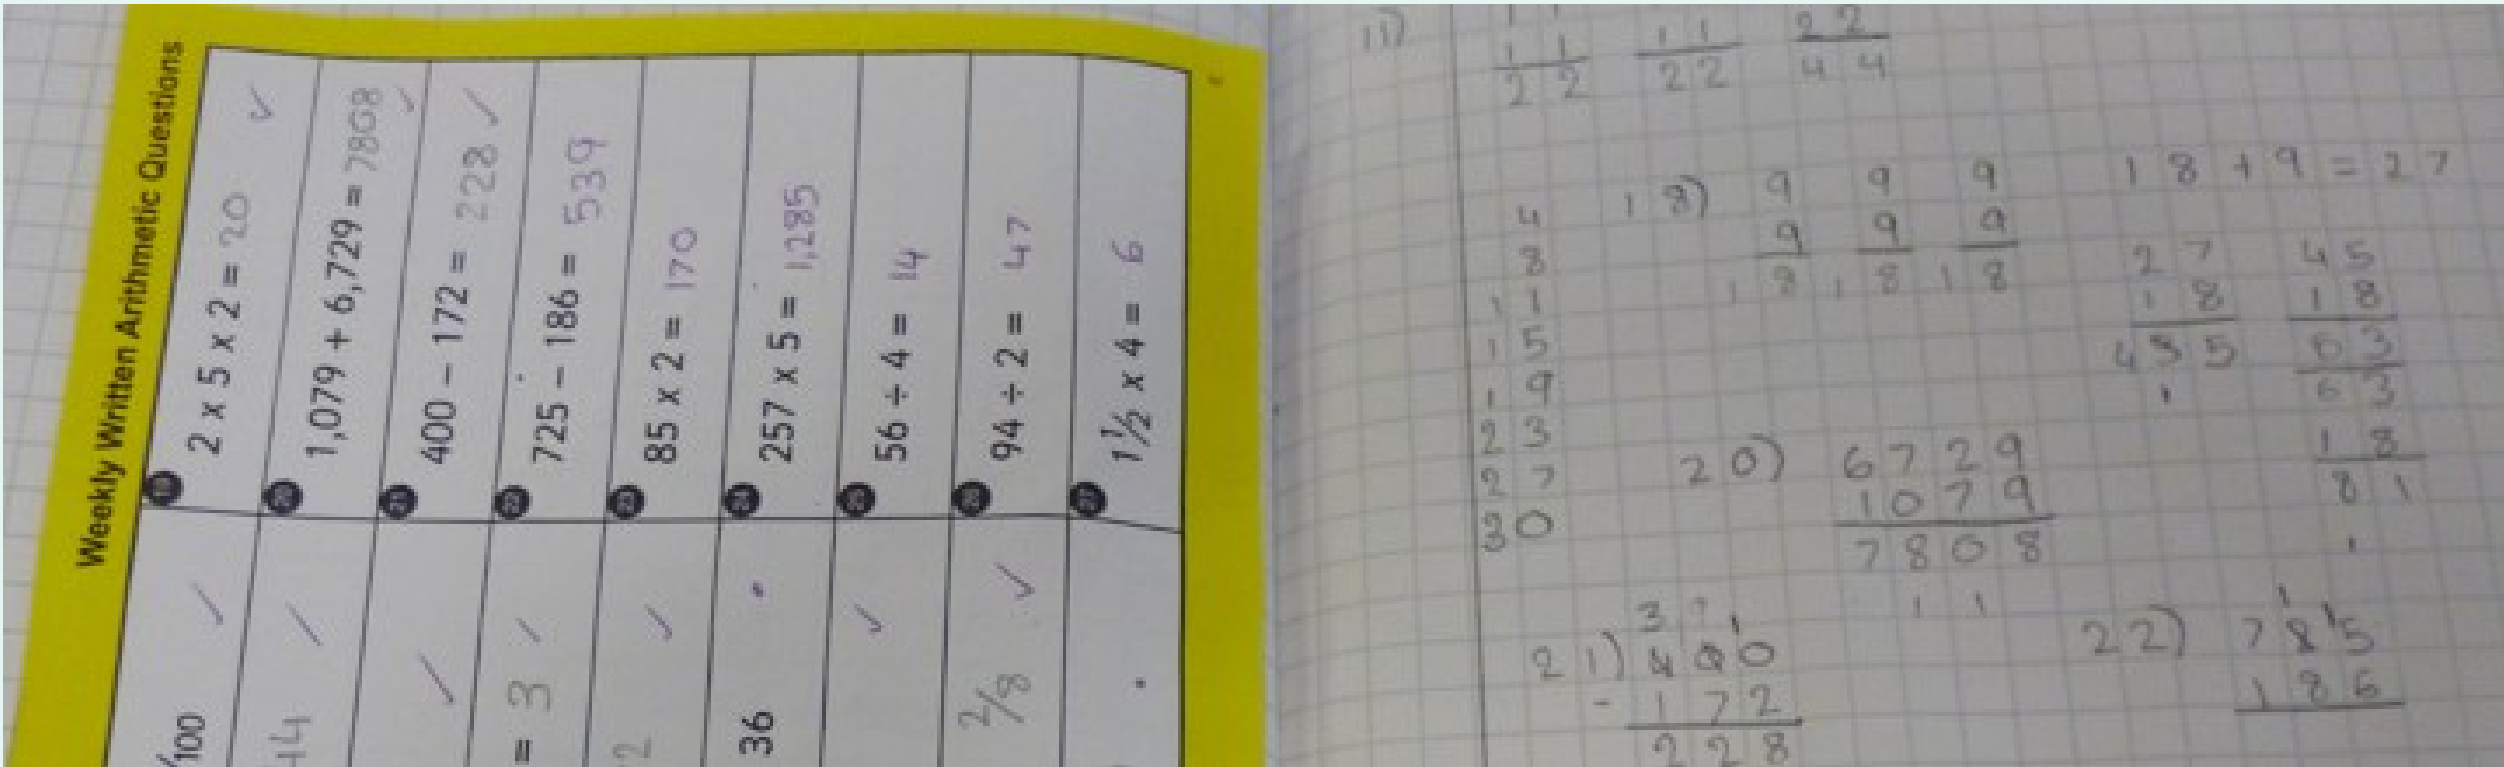 Weekly Written Arithmetic Questions
/100
19 2 x 5 x 2 = 20 ✓
14
20 1,079 + 6,729 = 7808 ✓
21 400 – 172 = 228 ✓
= 3
22 725 – 186 = 539
2
23 85 x 2 = 170
36
24 257 x 5 = 1,285
25 56 ÷ 4 = 14
2/8 ✓
26 94 ÷ 2 = 47
27 1½ x 4 = 6
11)
1 1 1 1 2 2
2 2 2 2 4 4
4
8
11
15
19
23
27
30
18) 9 9 9 18 + 9 = 27
9 9 9
18 18 18
27 45
18 18
63
63
18
81
1
20) 6729
1079
7808
1 1
21) 400
- 172
228
22) 7 5
186